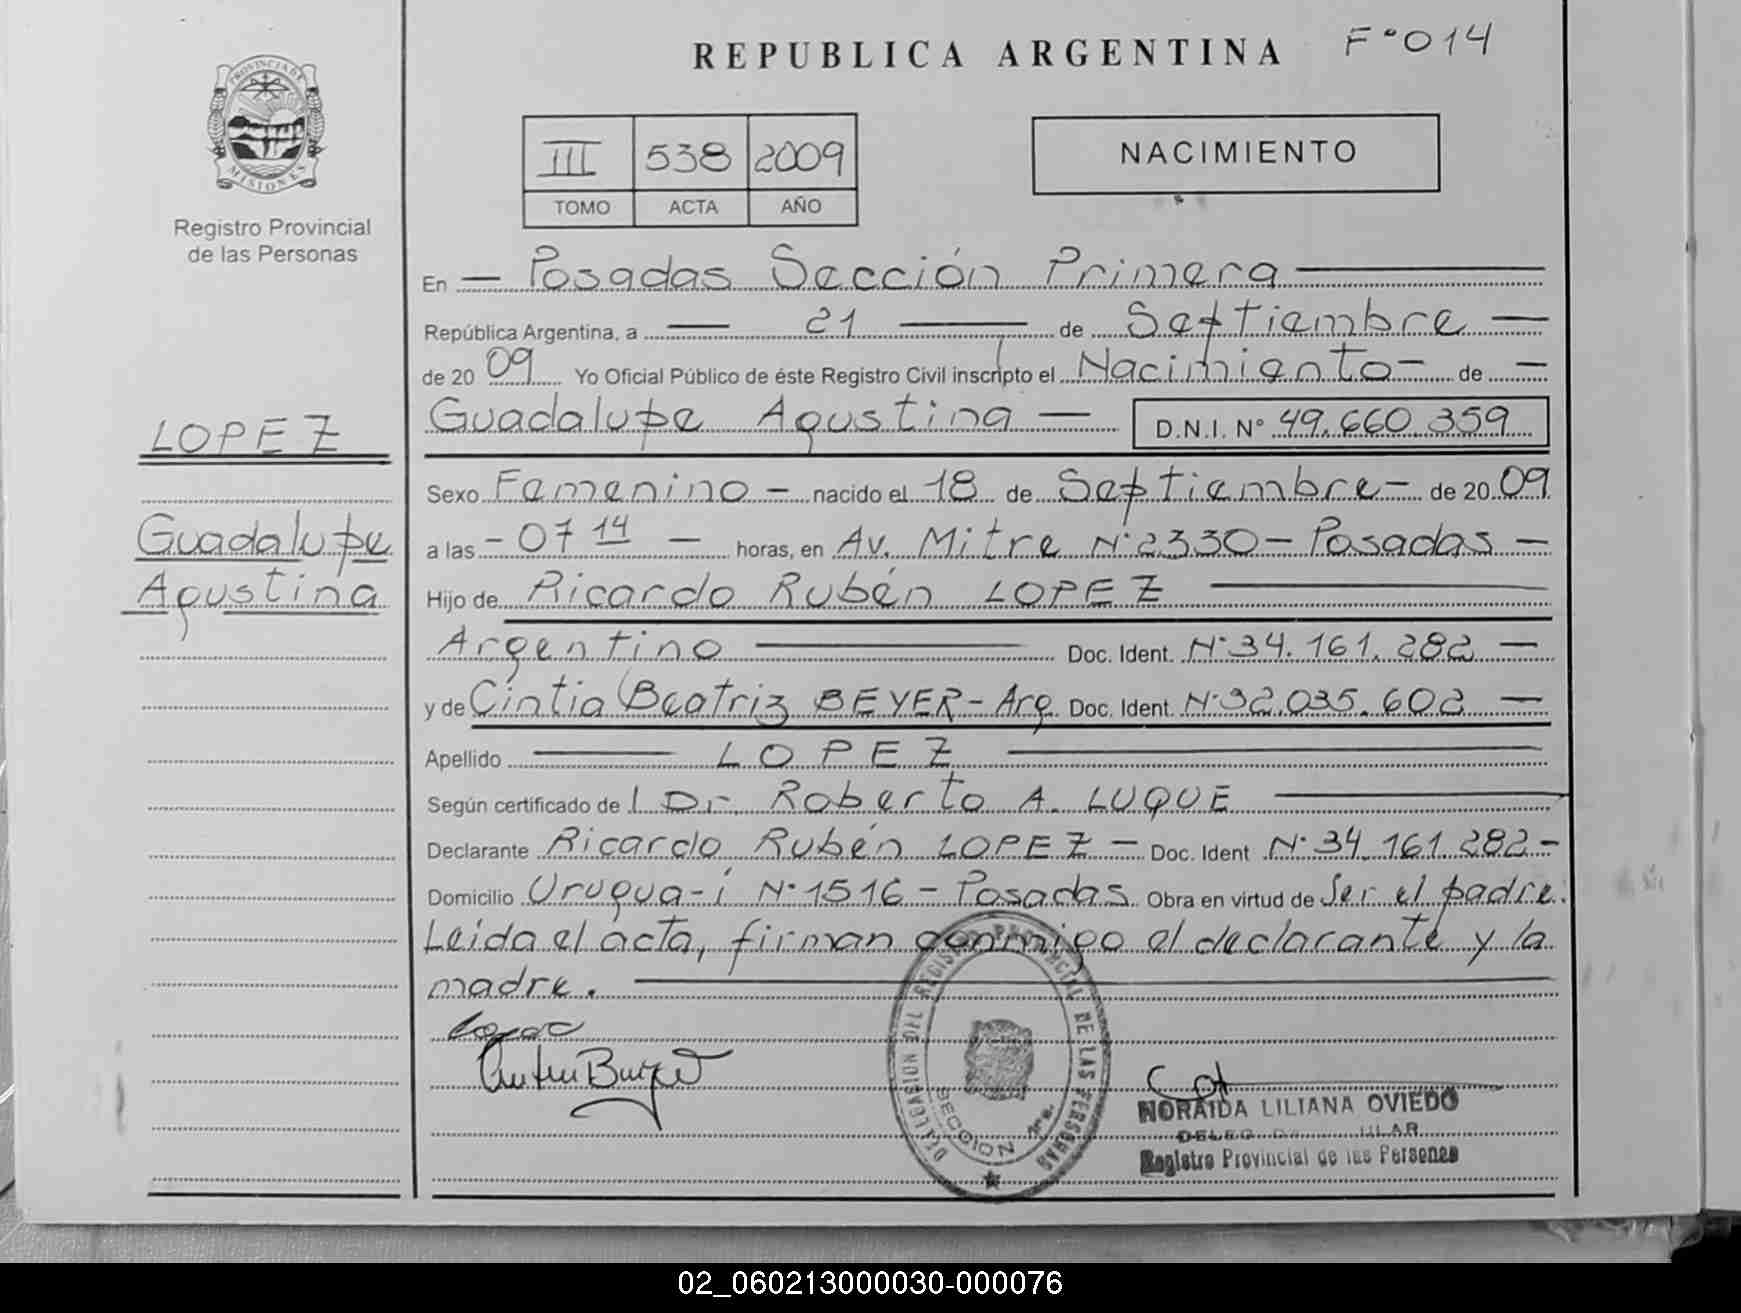 REPUBLICA ARGENTINA F°014
PROVINCIA DE
MISIONES
Registro Provincial
de las Personas
III 538 2009
TOMO ACTA AÑO
NACIMIENTO
En — Posadas Sección Primera —
República Argentina, a — 21 — de Septiembre —
de 2009 Yo Oficial Público de éste Registro Civil inscripto el Nacimiento — de —
Guadalupe Agustina — D.N.I. N° 49.660.359
LOPEZ
Guadalupe
Agustina
Sexo Femenino — nacido el 18 de Septiembre — de 2009
a las — 07 14 — horas, en Av. Mitre N° 2330 — Posadas —
Hijo de Ricardo Rubén LOPEZ —
Argentino — Doc. Ident. N° 34.161.282 —
y de Cintia Beatriz BEYER - Arg. Doc. Ident. N° 32.035.602 —
Apellido — LOPEZ —
Según certificado de l Dr. Roberto A. LUQUE —
Declarante Ricardo Rubén LOPEZ — Doc. Ident N° 34.161.282 —
Domicilio Urugua-í N° 1516 — Posadas Obra en virtud de Ser el padre.
Leida el acta, firman conmigo el declarante y la
madre. —
DELEGACION DEL REGISTRO PROVINCIAL DE LAS PERSONAS
SECCION 1ra.
NORAIDA LILIANA OVIEDO
Registro Provincial de las Personas
02_060213000030-000076